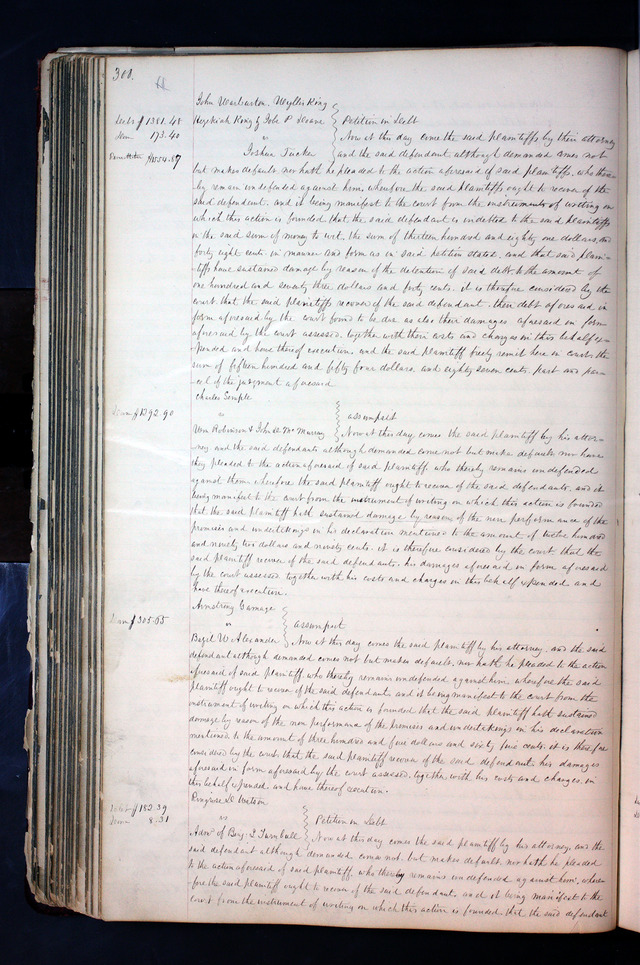 300.
John Warburton, Wyllys King
Debt $1381.48 Hezekiah King & Jole P Doane Petition in Debt
Dam 173.40 vs Now at this day come the said plaintiffs by their attorney
Execution $1554.87 Joshua Tucker and the said defendant although demanded comes not
but makes default nor hath he pleaded to the action aforesaid of said plaintiffs, who there
by remain undefended against him, wherefore the said plaintiffs ought to recover of the
said defendant. and it being manifest to the court from the instruments of writing on
which this action is founded that the said defendant is indebted to the said plaintiffs
in the said sum of money to wit, the sum of thirteen hundred and eighty one dollars, and
forty eight cents in manner and form as in said petition stated. and that said plain
tiffs have sustained damage by reason of the detention of said debt to the amount of
one hundred and seventy three dollars and forty cents. it is therefore considered by the
court that the said plaintiffs recover of the said defendant. their debt aforesaid in
form aforesaid by the court found to be due as also their damages aforesaid in form
aforesaid by the court assessed. together with their costs and charges in this behalf ex
pended and have thereof execution. and the said plaintiff freely remit here in court the
sum of fifteen hundred and fifty four dollars. and eighty seven cents. part and par
cel of the judgment aforesaid
Charles Semple
Dam $1292.90 vs assumpsit
Wm Robinson & John S. McMurray Now at this day, comes the said plaintiff by his attor
ney and the said defendants although demanded come not but make default nor have
they pleaded to the action aforesaid of said plaintiff. who thereby remains undefended
against them wherefore the said plaintiff ought to recover of the said defendants. and it
being manifest to the court from the instrument of writing on which this action is founded
that the said plaintiff hath sustained damage by reason of the non performance of the
promises and undertakings in his declaration mentioned to the amount of twelve hundred
and ninety two dollars and ninety cents. it is therefore considered by the court that the
said plaintiff recover of the said defendants. his damages aforesaid in form aforesaid
by the court assessed together with his costs and charges in this behalf expended and
have thereof execution.
Armstrong Gamage
Dam $305.65 vs assumpsit
Bazil W Alexander Now at this day comes the said plaintiff by his attorney. and the said
defendant although demanded comes not but makes default. nor hath he pleaded to the action
aforesaid of said plaintiff. who thereby remains undefended against him wherefore the said
plaintiff ought to recover of the said defendant and it being manifest to the court from the
instrument of writing on which this action is founded that the said plaintiff hath sustained
damage by reason of the non performance of the promises and undertakings in his declaration
mentioned to the amount of three hundred and five dollars and sixty five cents. it is therefore
considered by the court. that the said plaintiff recover of the said defendant. his damages
aforesaid in form aforesaid by the court assessed. together with his costs and charges. in
this behalf expended. and have thereof execution.
Debt $182.39 D Watson
Dam 8.31 vs Petition in Debt
Admr of Benj. L Turnbull Now at this day comes the said plaintiff by his attorney and the
said defendant although demanded comes not. but makes default. nor hath he pleaded
to the action aforesaid of said plaintiff. who thereby remains undefended against him, where
fore the said plaintiff ought to recover of the said defendant. and it being manifest to the
court from the instrument of writing on which this action is founded. that the said defendant